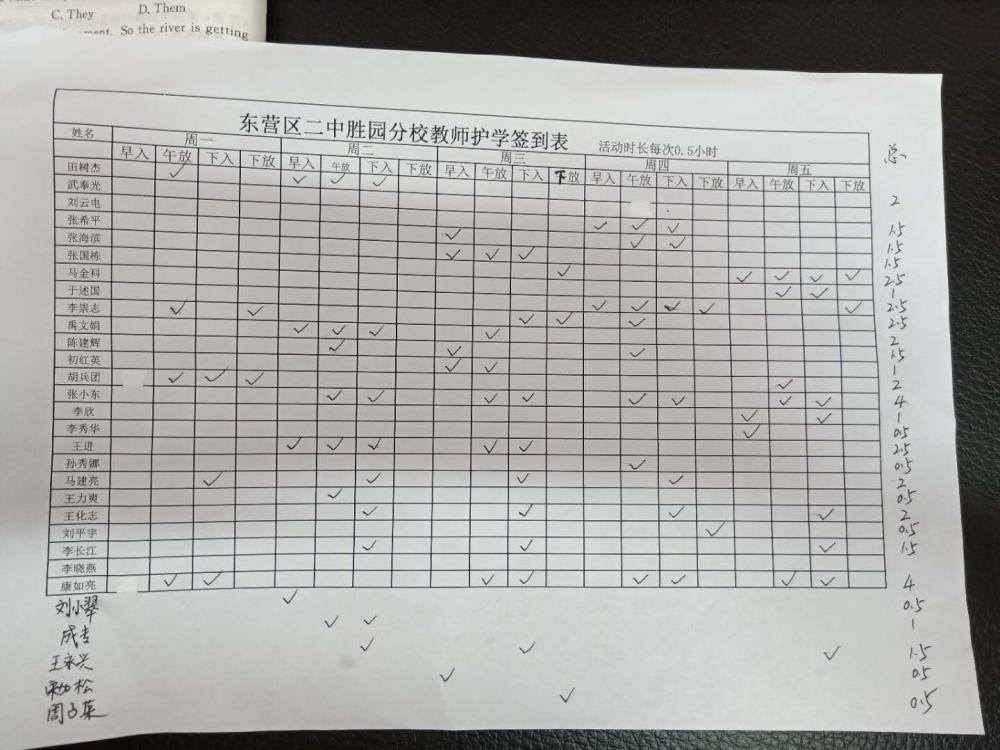 C. They D. Them
So the river is getting
东营区二中胜园分校教师护学签到表
活动时长每次0.5小时
姓名 周一 周二 周三 周四 周五 总
早入 午放 下入 下放 早入 午放 下入 下放 早入 午放 下入 下放 早入 午放 下入 下放 早入 午放 下入 下放
田树杰 ✓
武奉光 ✓ ✓ ✓ 2
刘云电
张希平 ✓ ✓ ✓ 1.5
张海滨 ✓ ✓ ✓ 1.5
张国栋 ✓ ✓ ✓ 1.5
马金科 ✓ ✓ ✓ ✓ ✓ 2.5
于述国 ✓ ✓ 1
李崇志 ✓ ✓ ✓ ✓ ✓ ✓ ✓ 2.5
禹文娟 ✓ ✓ ✓ ✓ ✓ ✓ ✓ 2.5
陈建辉 ✓ ✓ ✓ 2
初红英 ✓ ✓ 1.5
胡兵团 ✓ ✓ ✓ ✓ 1
张小东 ✓ ✓ ✓ ✓ ✓ ✓ ✓ ✓ 2
李欣 ✓ ✓ 4
李秀华 ✓ 1
王进 ✓ ✓ ✓ ✓ ✓ 0.5
孙秀娜 ✓ 2.5
马建亮 ✓ ✓ ✓ ✓ 0.5
王力爽 ✓ 2
王化志 ✓ ✓ ✓ ✓ 0.5
刘平宇 ✓ 2
李长江 ✓ ✓ ✓ 0.5
李晓燕 1.5
康如亮 ✓ ✓ ✓ ✓ ✓ ✓ ✓ ✓ 4
刘小翠 ✓ 0.5
✓ ✓ 1
王永兴 ✓ ✓ ✓ 1.5
松 ✓ 0.5
周子 ✓ 0.5